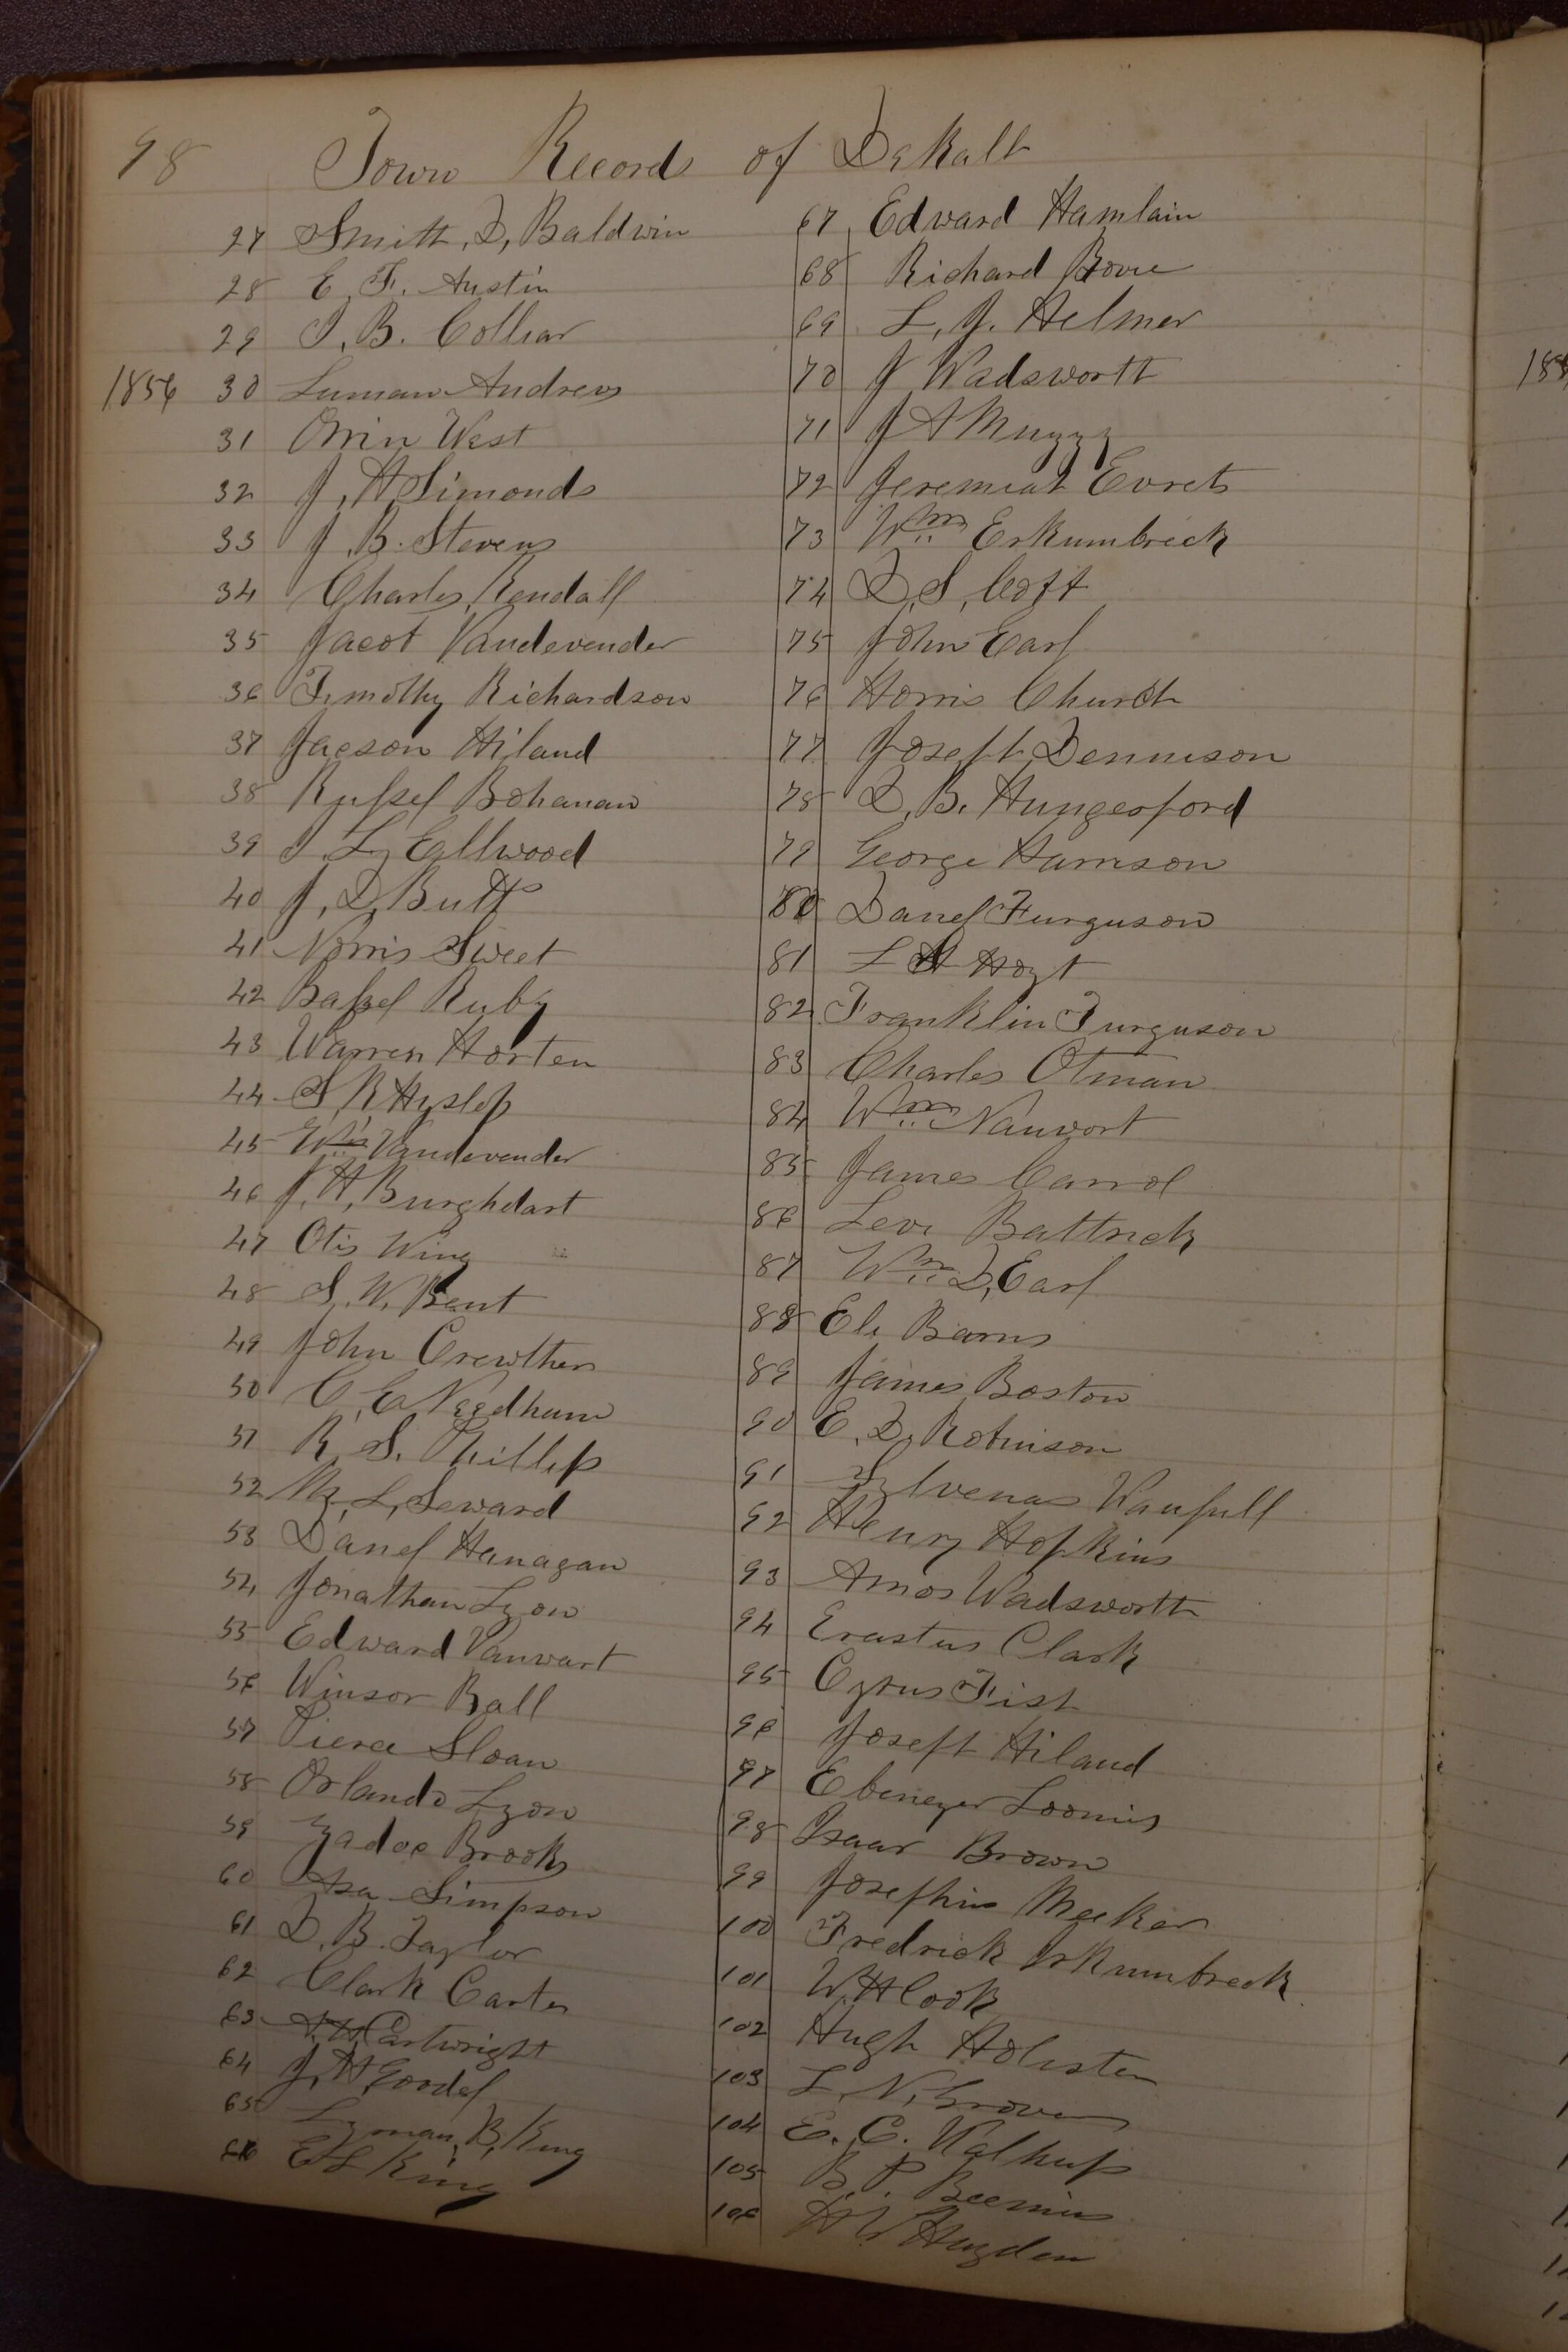 98 Town Records of DeKalb
27 Smith, D, Baldwin
28 E. F. Austin
29 I. B. Colliar
1856 30 Luman Andrews
31 Orrin West
32 J, H Simonds
33 J. B. Stevens
34 Charles Kendall
35 Jacob Vandevender
36 Timothy Richardson
37 Jacson Hiland
38 Russel Bohanan
39 I. L, Ellwood
40 J, D, Butts
41 Norris Sweet
42 Bassel Ruby
43 Warren Horten
44 S R Hyslop
45 Wm Vandevender
46 J, H, Burghdart
47 Otis Wing
48 S. W. Bent
49 John Crewthers
50 C, E Needham
51 R. S. Phillips
52 M, L, Seward
53 Danel Hanagan
54 Jonathan Lyon
55 Edward Vanwart
56 Winsor Ball
57 Pierce Sloan
58 Orlando Lyon
59 Zadoc Brooks
60 Asa Simpson
61 D. B. Taylor
62 Clark Carter
63 Cartwright
64 J, H Goodel
65 Lyman, B, King
66 E L King
67 Edward Hamlain
68 Richard Bovie
69 L, J. Helmer
70 J Wadsworth
71 J A Muzzy
72 Jeremiah Evrets
73 Wm Erkumbreck
74 D, S, Coft
75 John Earl
76 Horris Church
77 Joseph Dennison
78 D. B. Hungerford
79 George Harrison
80 Danel Furguson
81 L H Hoyt
82 Franklin Furguson
83 Charles Otman
84 Wm Nanwort
85 James Carrol
86 Levi Battrick
87 Wm D, Earl
88 Eli Barns
89 James Boston
90 E. D, Robinson
91 Sylvenas Wanfull
92 Henry Hopkins
93 Amos Wadsworth
94 Erastus Clark
95 Cyrus Fish
96 Joseph Hiland
97 Ebenezer Loomis
98 Isaac Brown
99 Josephus Meeker
100 Fredrick Irkumbreck
101 W. H Cook
102 Hugh Holister
103 L, N, Grover
104 E. C. Walkup
105 B. P. Beemins
106 H W Hayden